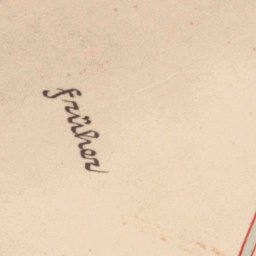 früher